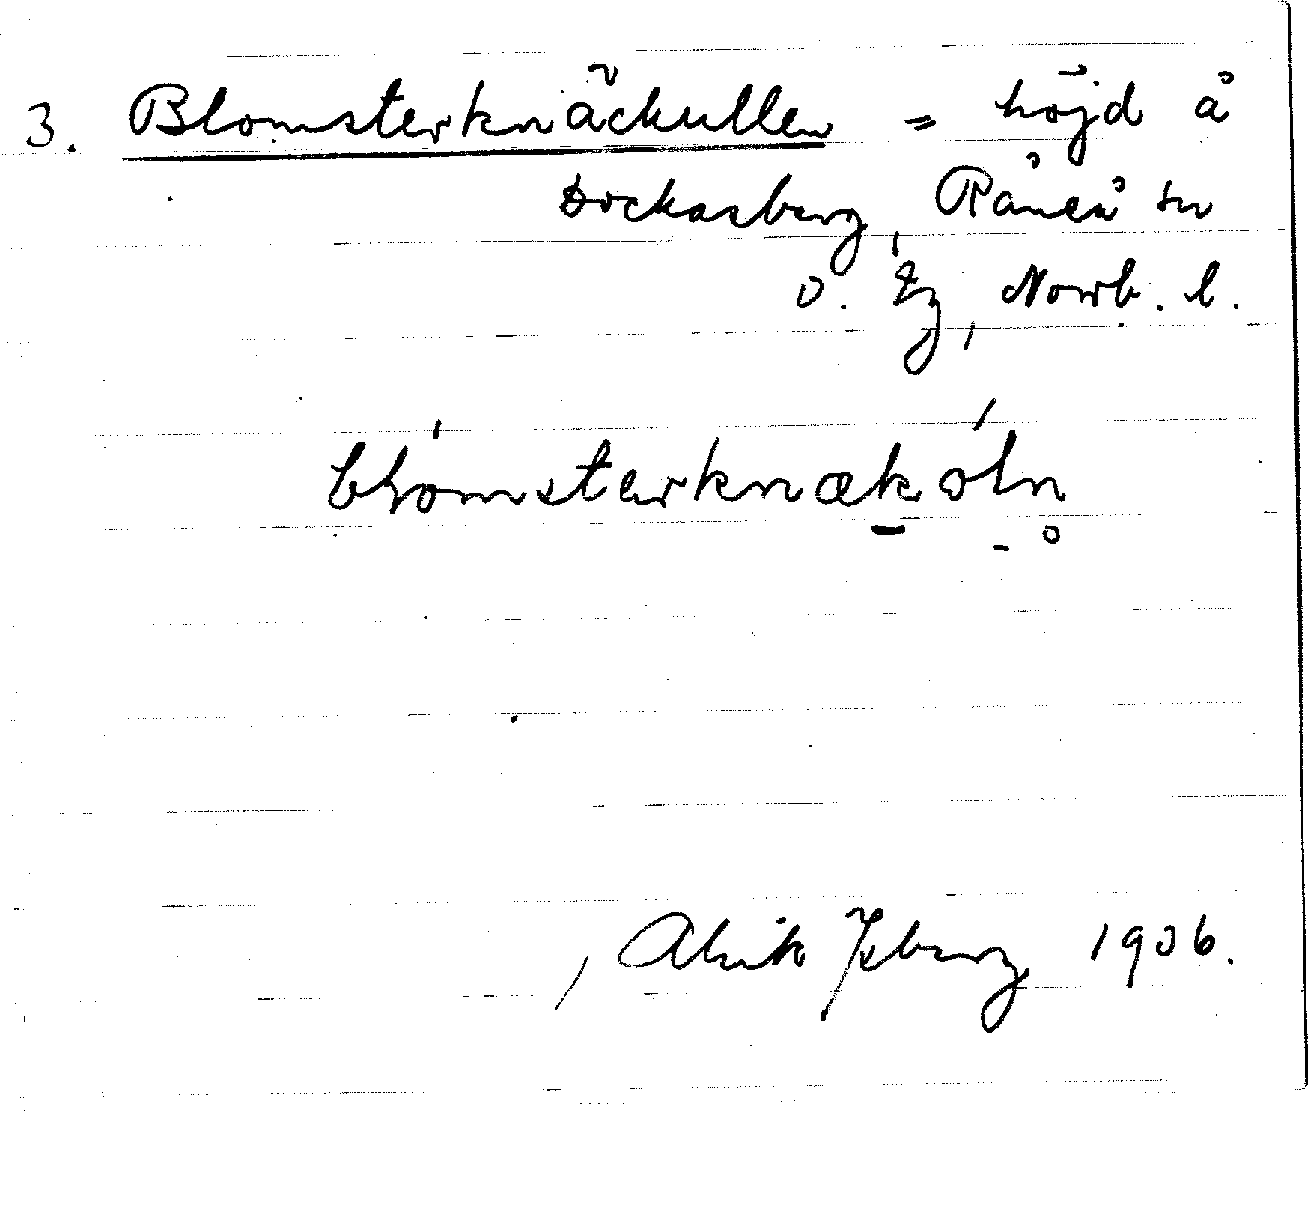 3. Blomsterknäckullen = höjd å
Dockasberg, Råneå sn
o. tg, Norrb. l.
blomsterknækoln
Alrik Isberg 1906.